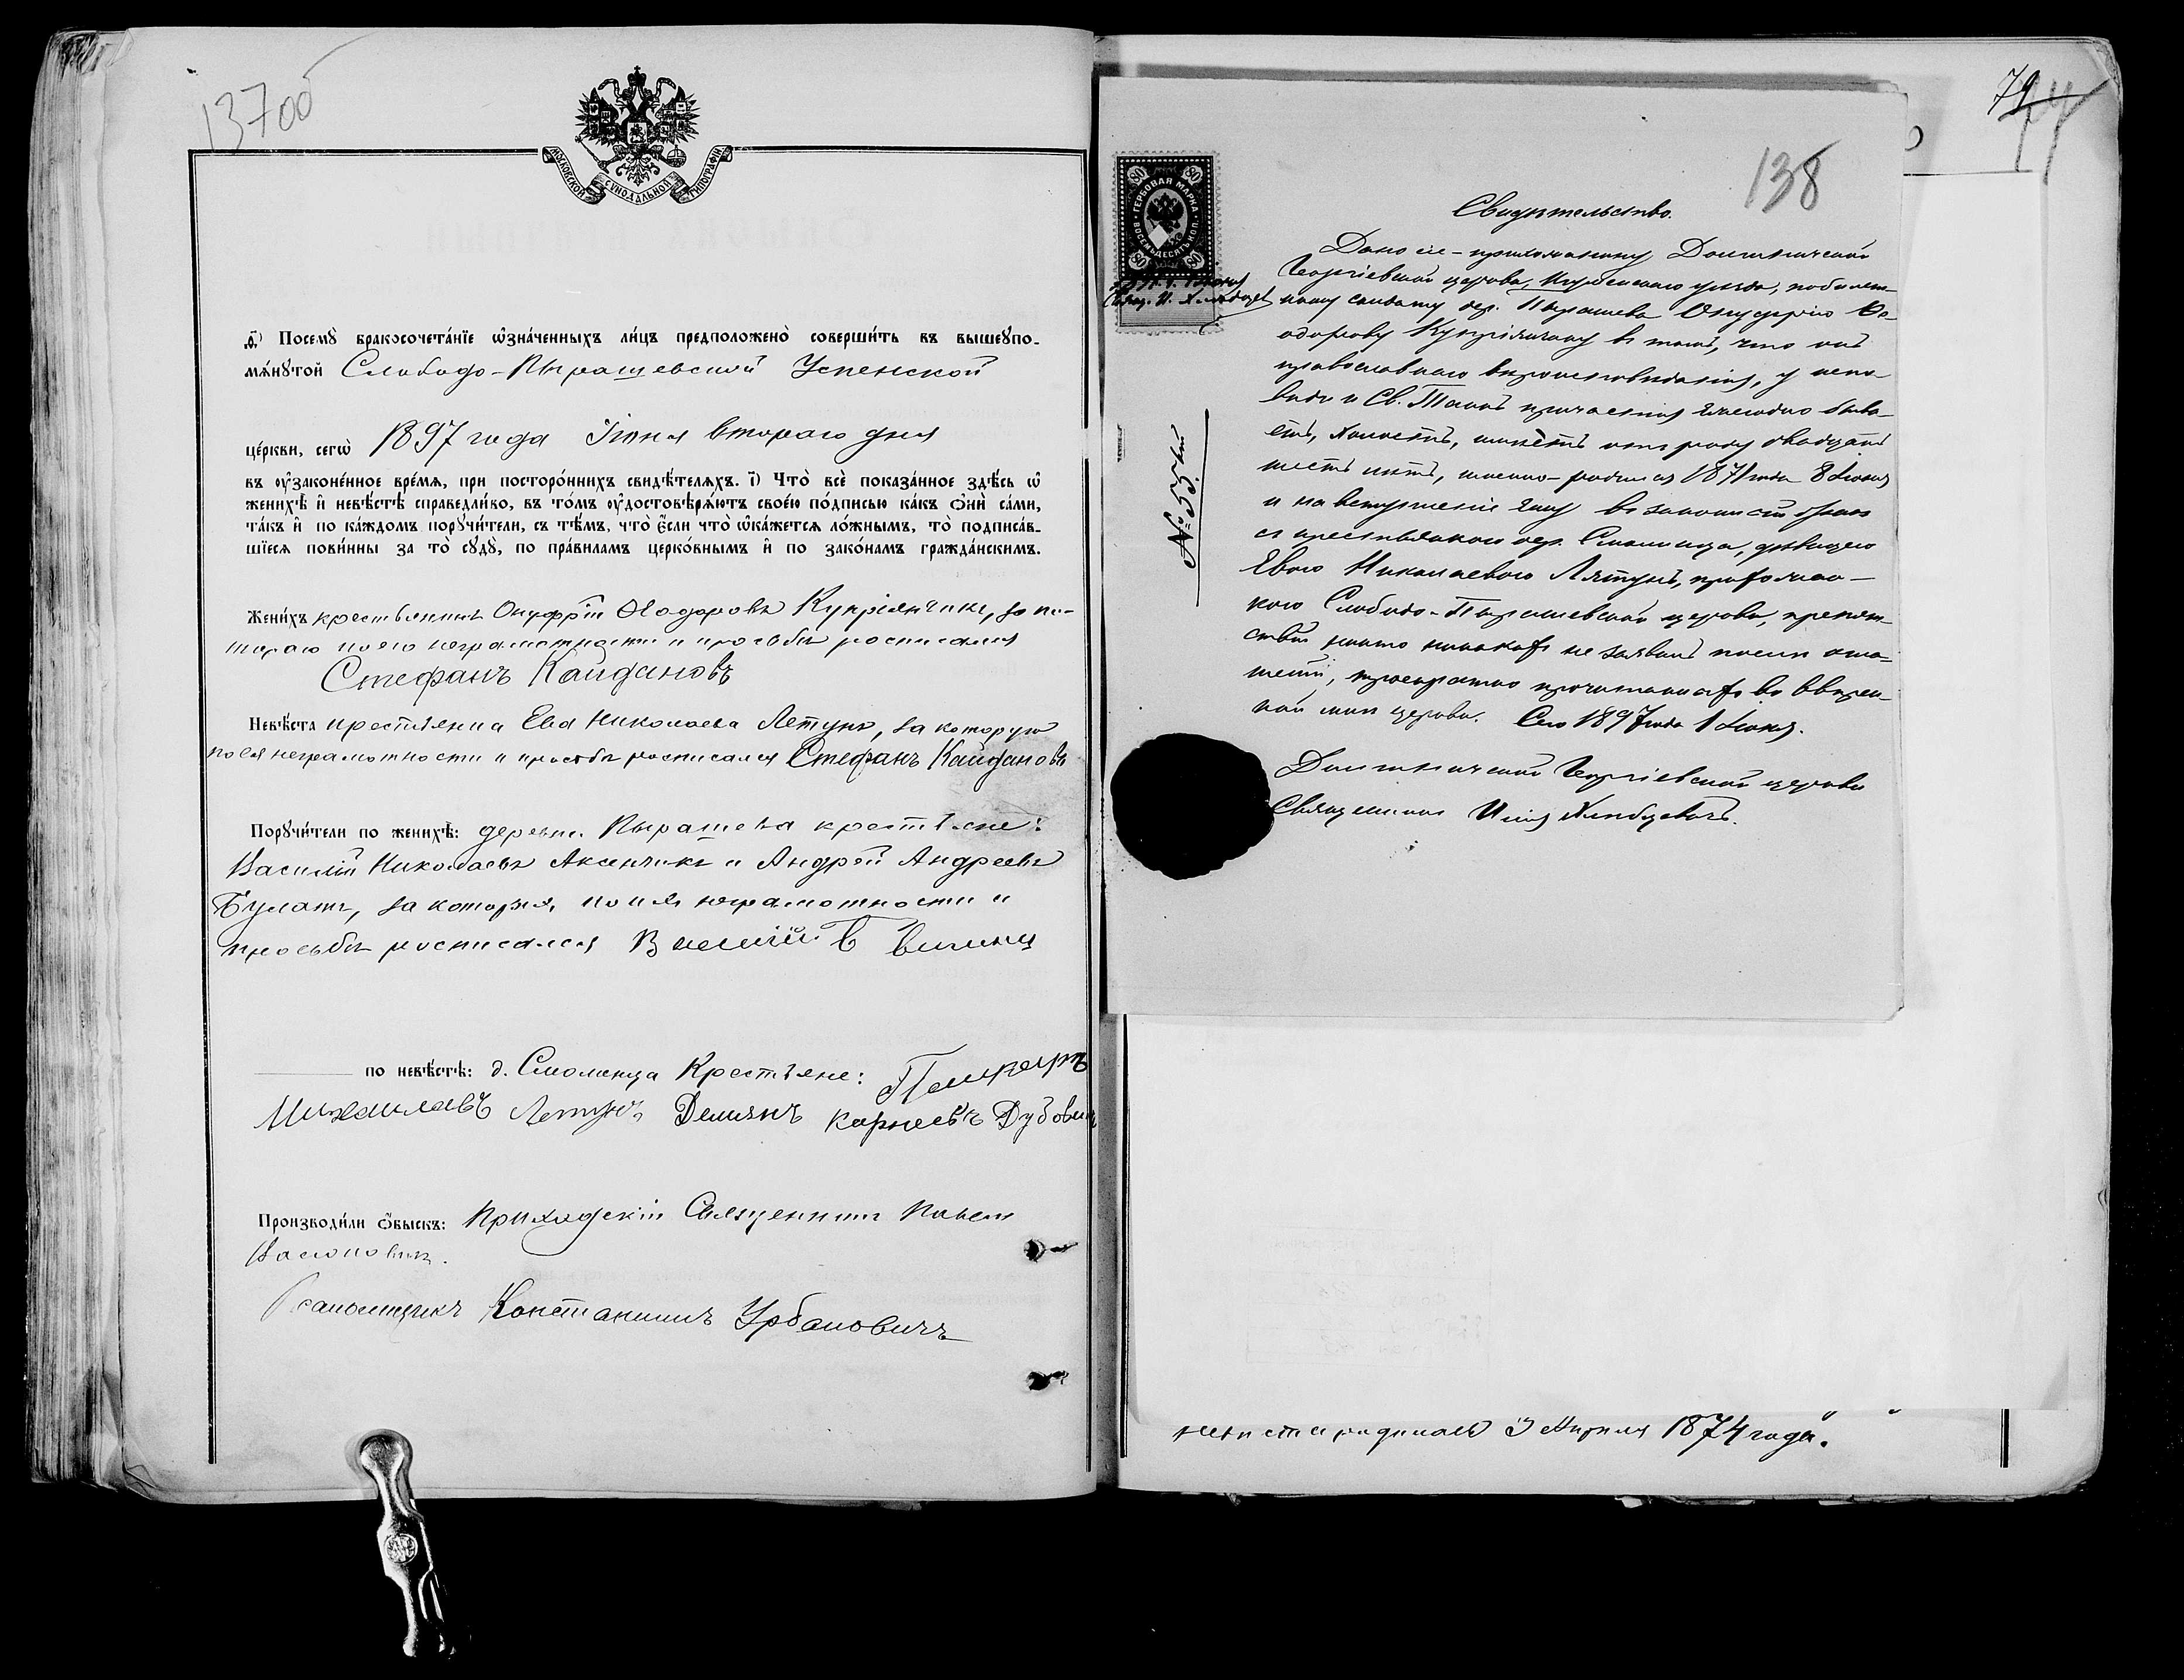 13700
МОСКОВСКОЙ СѴНОДАЛЬНОЙ ТИПОГРАФІИ
Посемꙋ̀ бракосочета́нїе ѡ҆зна́ченныхъ ли́цъ предположено̀ соверши́ть въ вышеꙋпо-
мѧ́нꙋтой Слободо-Пырашевской Успенской
це́ркви, сегѡ̀ 1897 года Іюня втораго дня
въ ᲂу҆законе́нное вре́мѧ, при посторо́ннихъ свидѣ́телѧхъ. і҃) Что̀ всѐ пока́занное здѣ́сь ѡ҆
женихѣ̀ и҆ невѣ́стѣ справедли́во, въ то́мъ ᲂу҆достовѣрѧ́ютъ свое́ю по́дписью ка́къ ѻ҆нѝ са́ми,
та́къ и҆ по ка́ждомъ порꙋчи́тели, съ тѣ́мъ, что̀ є҆́сли что̀ ѡ҆ка́жется ло́жнымъ, то̀ подписа́в-
шїеся пови́нны за то̀ сꙋдꙋ̀, по пра́виламъ церко́внымъ и҆ по зако́намъ гражда́нскимъ.
Жени́хъ крестьянинъ Онуфрій Ѳеодоровъ Купріянчикъ, за ко-
тораго по его неграмотности и просьбѣ росписался
Стефанъ Кайдановъ
Невѣ́ста крестьянка Ева Николаева Летунъ, за которую
по ея неграмотности и просьбѣ росписался Стефанъ Кайдановъ
Порꙋчи́тели по женихѣ̀: деревни Пырашева крестьяне:
Василій Николаевъ Аксенчикъ и Андрей Андреевъ
Булатъ, за которыхъ, по ихъ неграмотности и
просьбѣ росписался
по невѣ́стѣ: д. Смолинца Крестьяне:
Михаиловъ Летунъ, Демьянъ Карнеевъ
Производи́ли ѻ҆́быскъ: Приходскій Священникъ Павелъ
Псаломщикъ Константинъ Урбановичъ
79
138
ГЕРБОВАЯ МАРКА
ВОСЕМЬДЕСЯТЪ КОП.
80 80 80 80
Свидѣтельство.
Дано сіе - прихожанину
Георгіевской церкви, Игуменскаго уѣзда, побилет-
ному солдату дер. Пырашева Онуфрію Ѳе-
одорову Купріянчику въ томъ, что онъ
православнаго вѣроисповѣданія, у испо-
вѣди и Св. Таинъ причастія ежегодно быва-
етъ, холостъ, имѣетъ отъ роду двадцать
шесть лѣтъ, именно-родился 1871 года 8 Іюня
и на вступленіе ему въ законный бракъ
съ крестьянкою дер. Смолинца, дѣвицею
Евою Николаевою Лятунъ, прихожан-
кою Слободо-Пырашевской церкви, препят-
ствій никто никакихъ не заявилъ послѣ огла-
шеній, троекратно прочитанныхъ во ввѣрен-
ной мнѣ церкви. Сего 1897 года 1 Іюня.
Георгіевской церкви
Священникъ Илія Хлѣбцевичъ.
№ 55-й
невѣста родилась 3 Апрѣля 1874 года.